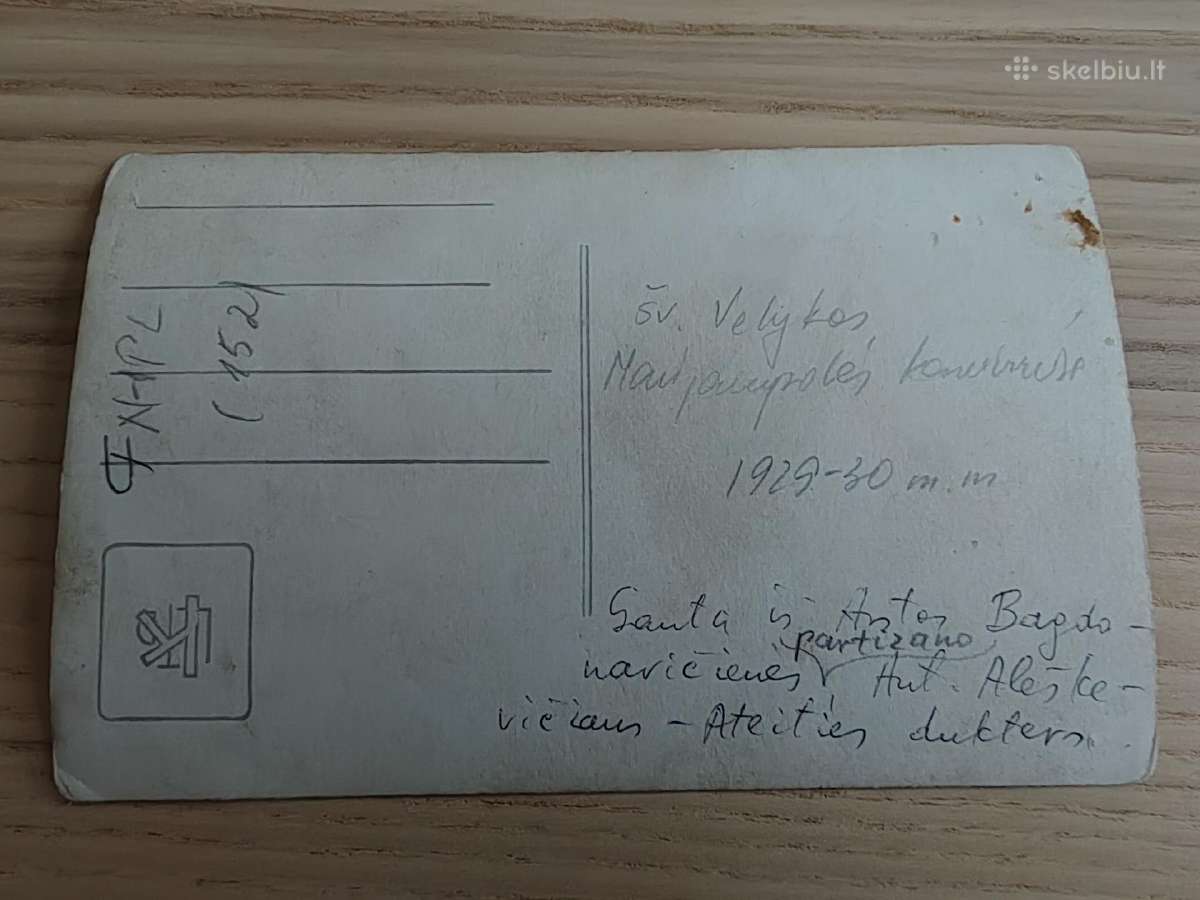 skelbiu.lt
ŠMPL
(152)
šv. Velykos
Marijampolės
1929-30 m.m
Gauta iš Antos Bagdo-
navičienės partizano Ant. Aleške-
vičiaus - Ateities dukters.